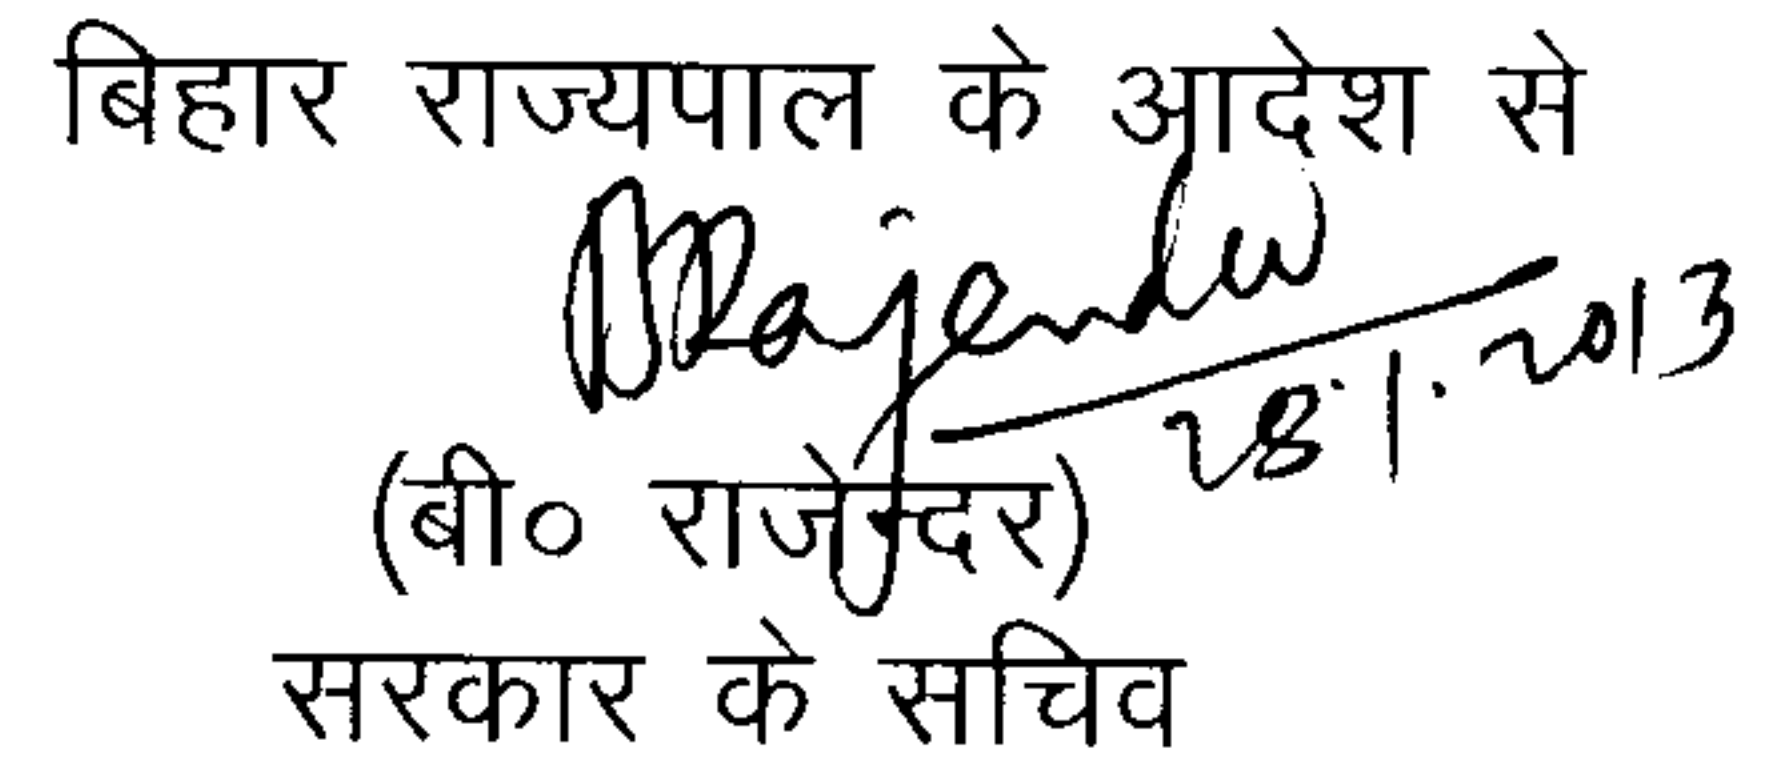 बिहार राज्यपाल के आदेश से
BRajender
28.1.2013
(बी० राजेन्दर)
सरकार के सचिव